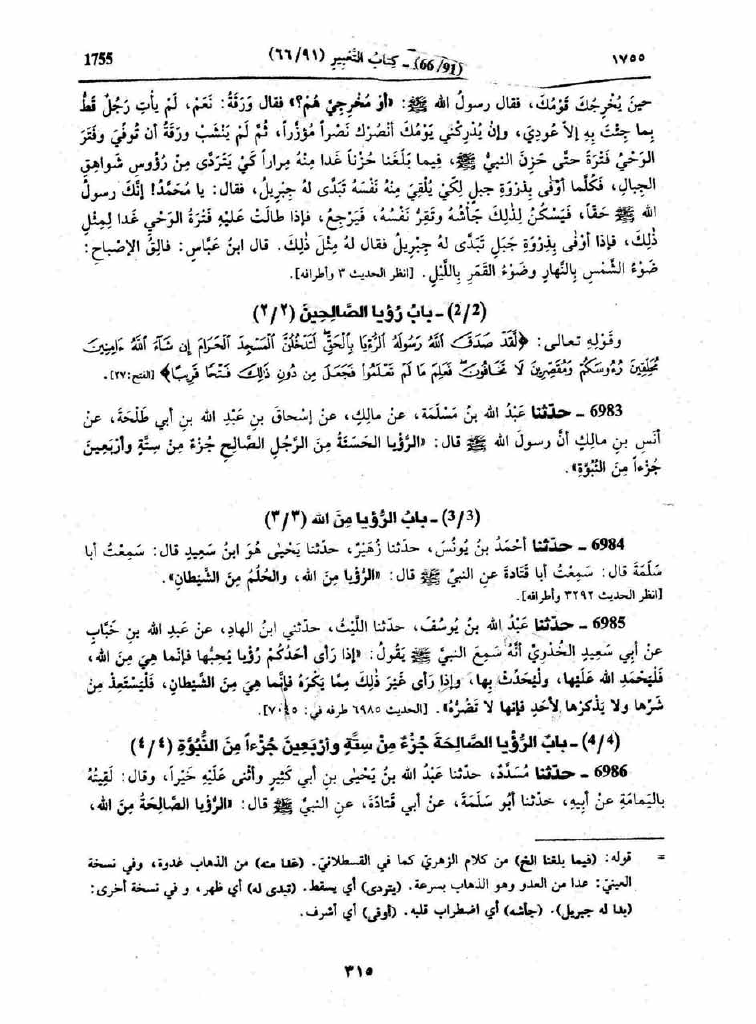 ١٧٥٥ (66/91) - كِتَابُ التَّعْبِيرِ (٦٦/٩١) 1755
حينَ يُخْرِجُكَ قَوْمُكَ، فقال رسولُ الله ﷺ: «أوَ مُخْرِجِيَّ هُمْ؟» فقال وَرَقَةُ: نَعَمْ، لَمْ يأتِ رَجُلٌ قَطُّ
بِما جِئْتَ بِهِ إلاّ عُودِيَ، وإن يُدْرِكْني يَوْمُكَ أنْصُرْكَ نَصْراً مُؤَزَّراً، ثُمَّ لَمْ يَنْشَبْ ورَقَةُ أن تُوفِّيَ وفَتَرَ
الوَحْيُ فَتْرَةً حتَّى حَزِنَ النبيُّ ﷺ، فيما بَلَغَنا حُزْناً غَدا مِنْهُ مِراراً كَيْ يَتَرَدَّى مِنْ رُؤوسِ شَواهِقِ
الجِبالِ، فَكُلَّما أوْفَى بِذِرْوَةِ جبلٍ لِكَيْ يُلْقِيَ مِنْهُ نَفْسَهُ تَبَدَّى لهُ جِبْرِيلُ، فقال: يا مُحَمَّدُ! إنَّكَ رسولُ
الله ﷺ حَقّاً، فَيَسْكُنُ لِذٰلِكَ جَأشُهُ وتَقِرُّ نَفْسُهُ، فَيَرْجِعُ، فإذا طالَتْ عَلَيْهِ فَتْرَةُ الوَحْيِ غَدا لِمِثْلِ
ذٰلِكَ، فإذا أوْفَى بِذِرْوَةِ جَبَلٍ تَبَدَّى لهُ جِبْرِيلُ فقال لهُ مِثْلَ ذٰلِكَ. قال ابنُ عَبَّاسٍ: فالِقُ الإصْباحِ:
ضَوْءُ الشَّمْسِ بالنَّهارِ وضَوْءُ القَمَرِ بِاللَّيْلِ. [انظر الحديث ٣ وأطرافه].
(2/2) - بابُ رُؤيا الصَّالِحِينَ (٢/٢)
وقَوْلِهِ تعالى: ﴿لَّقَدْ صَدَقَ ٱللَّهُ رَسُولَهُ ٱلرُّءْيَا بِٱلْحَقِّ لَتَدْخُلُنَّ ٱلْمَسْجِدَ ٱلْحَرَامَ إِن شَآءَ ٱللَّهُ ءَامِنِينَ
مُحَلِّقِينَ رُءُوسَكُمْ وَمُقَصِّرِينَ لَا تَخَافُونَ فَعَلِمَ مَا لَمْ تَعْلَمُوا۟ فَجَعَلَ مِن دُونِ ذَٰلِكَ فَتْحًا قَرِيبًا﴾ [الفتح: ٢٧].
6983 - حدّثنا عَبْدُ الله بنُ مَسْلَمَةَ، عنْ مالِكٍ، عنْ إسْحاقَ بنِ عَبْدِ الله بنِ أبي طَلْحَةَ، عنْ
أنَسِ بنِ مالِكٍ أنَّ رسولَ الله ﷺ قال: «الرُّؤيا الحَسَنَةُ مِنَ الرَّجُلِ الصَّالِحِ جُزْءٌ مِنْ سِتَّةٍ وأرْبَعِينَ
جُزْءاً مِنَ النُّبُوَّةِ».
(3/3) - بابُ الرُّؤيا مِنَ الله (٣/٣)
6984 - حدّثنا أحْمَدُ بنُ يُونُسَ، حدّثنا زُهَيْرٌ، حدّثنا يَحْيَى هُوَ ابنُ سَعِيدٍ قال: سَمِعْتُ أبا
سَلَمَةَ قال: سَمِعْتُ أبا قَتَادَةَ عنِ النبيِّ ﷺ قال: «الرُّؤيا مِنَ الله، والحُلُمُ مِنَ الشَّيْطانِ».
[انظر الحديث ٣٢٩٢ وأطرافه].
6985 - حدّثنا عَبْدُ الله بنُ يُوسُفَ، حدّثنا اللَّيْثُ، حدّثني ابنُ الهادِ، عنْ عَبدِ الله بنِ خَبَّابٍ
عنْ أبي سَعِيدٍ الخُدْرِيِّ أنَّهُ سَمِعَ النبيَّ ﷺ يَقُولُ: «إذا رَأى أحَدُكُمْ رُؤيا يُحِبُّها فإنَّما هِيَ مِنَ الله،
فَلْيَحْمَدِ الله عَلَيْها، ولْيُحَدِّثْ بِها، وإذا رَأى غَيْرَ ذٰلِكَ مِمَّا يَكْرَهُ فإنَّما هِيَ مِنَ الشَّيْطانِ، فَلْيَسْتَعِذْ مِنْ
شَرِّها ولا يَذْكُرْها لأحَدٍ فإنها لا تَضُرُّهُ». [الحديث ٦٩٨٥ طرفه في: ٧٠٤٥].
(4/4) - بابُ الرُّؤيا الصَّالِحَةُ جُزْءٌ مِنْ سِتَّةٍ وأرْبَعِينَ جُزْءاً مِنَ النُّبُوَّةِ (٤/٤)
6986 - حدّثنا مُسَدَّدٌ، حدّثنا عَبْدُ الله بنُ يَحْيَى بنِ أبي كَثِيرٍ وأثْنَى عَلَيْهِ خَيْراً، وقال: لَقِيتُهُ
بِاليَمامَةِ عنْ أبِيهِ، حدّثنا أبُو سَلَمَةَ، عنْ أبي قَتادَةَ، عنِ النبيِّ ﷺ قال: «الرُّؤيا الصَّالِحَةُ مِنَ الله،
= قوله: (فيما بلغنا الخ) من كلام الزهريّ كما في القسطلانيّ. (غدا منه) من الذهاب غدوة، وفي نسخة
العينيّ: عدا من العدو وهو الذهاب بسرعة. (يتردى) أي يسقط. (تبدى له) أي ظهر، و في نسخة أخرى:
(بدا له جبريل). (جأشه) أي اضطراب قلبه. (أوفى) أي أشرف.
٣١٥